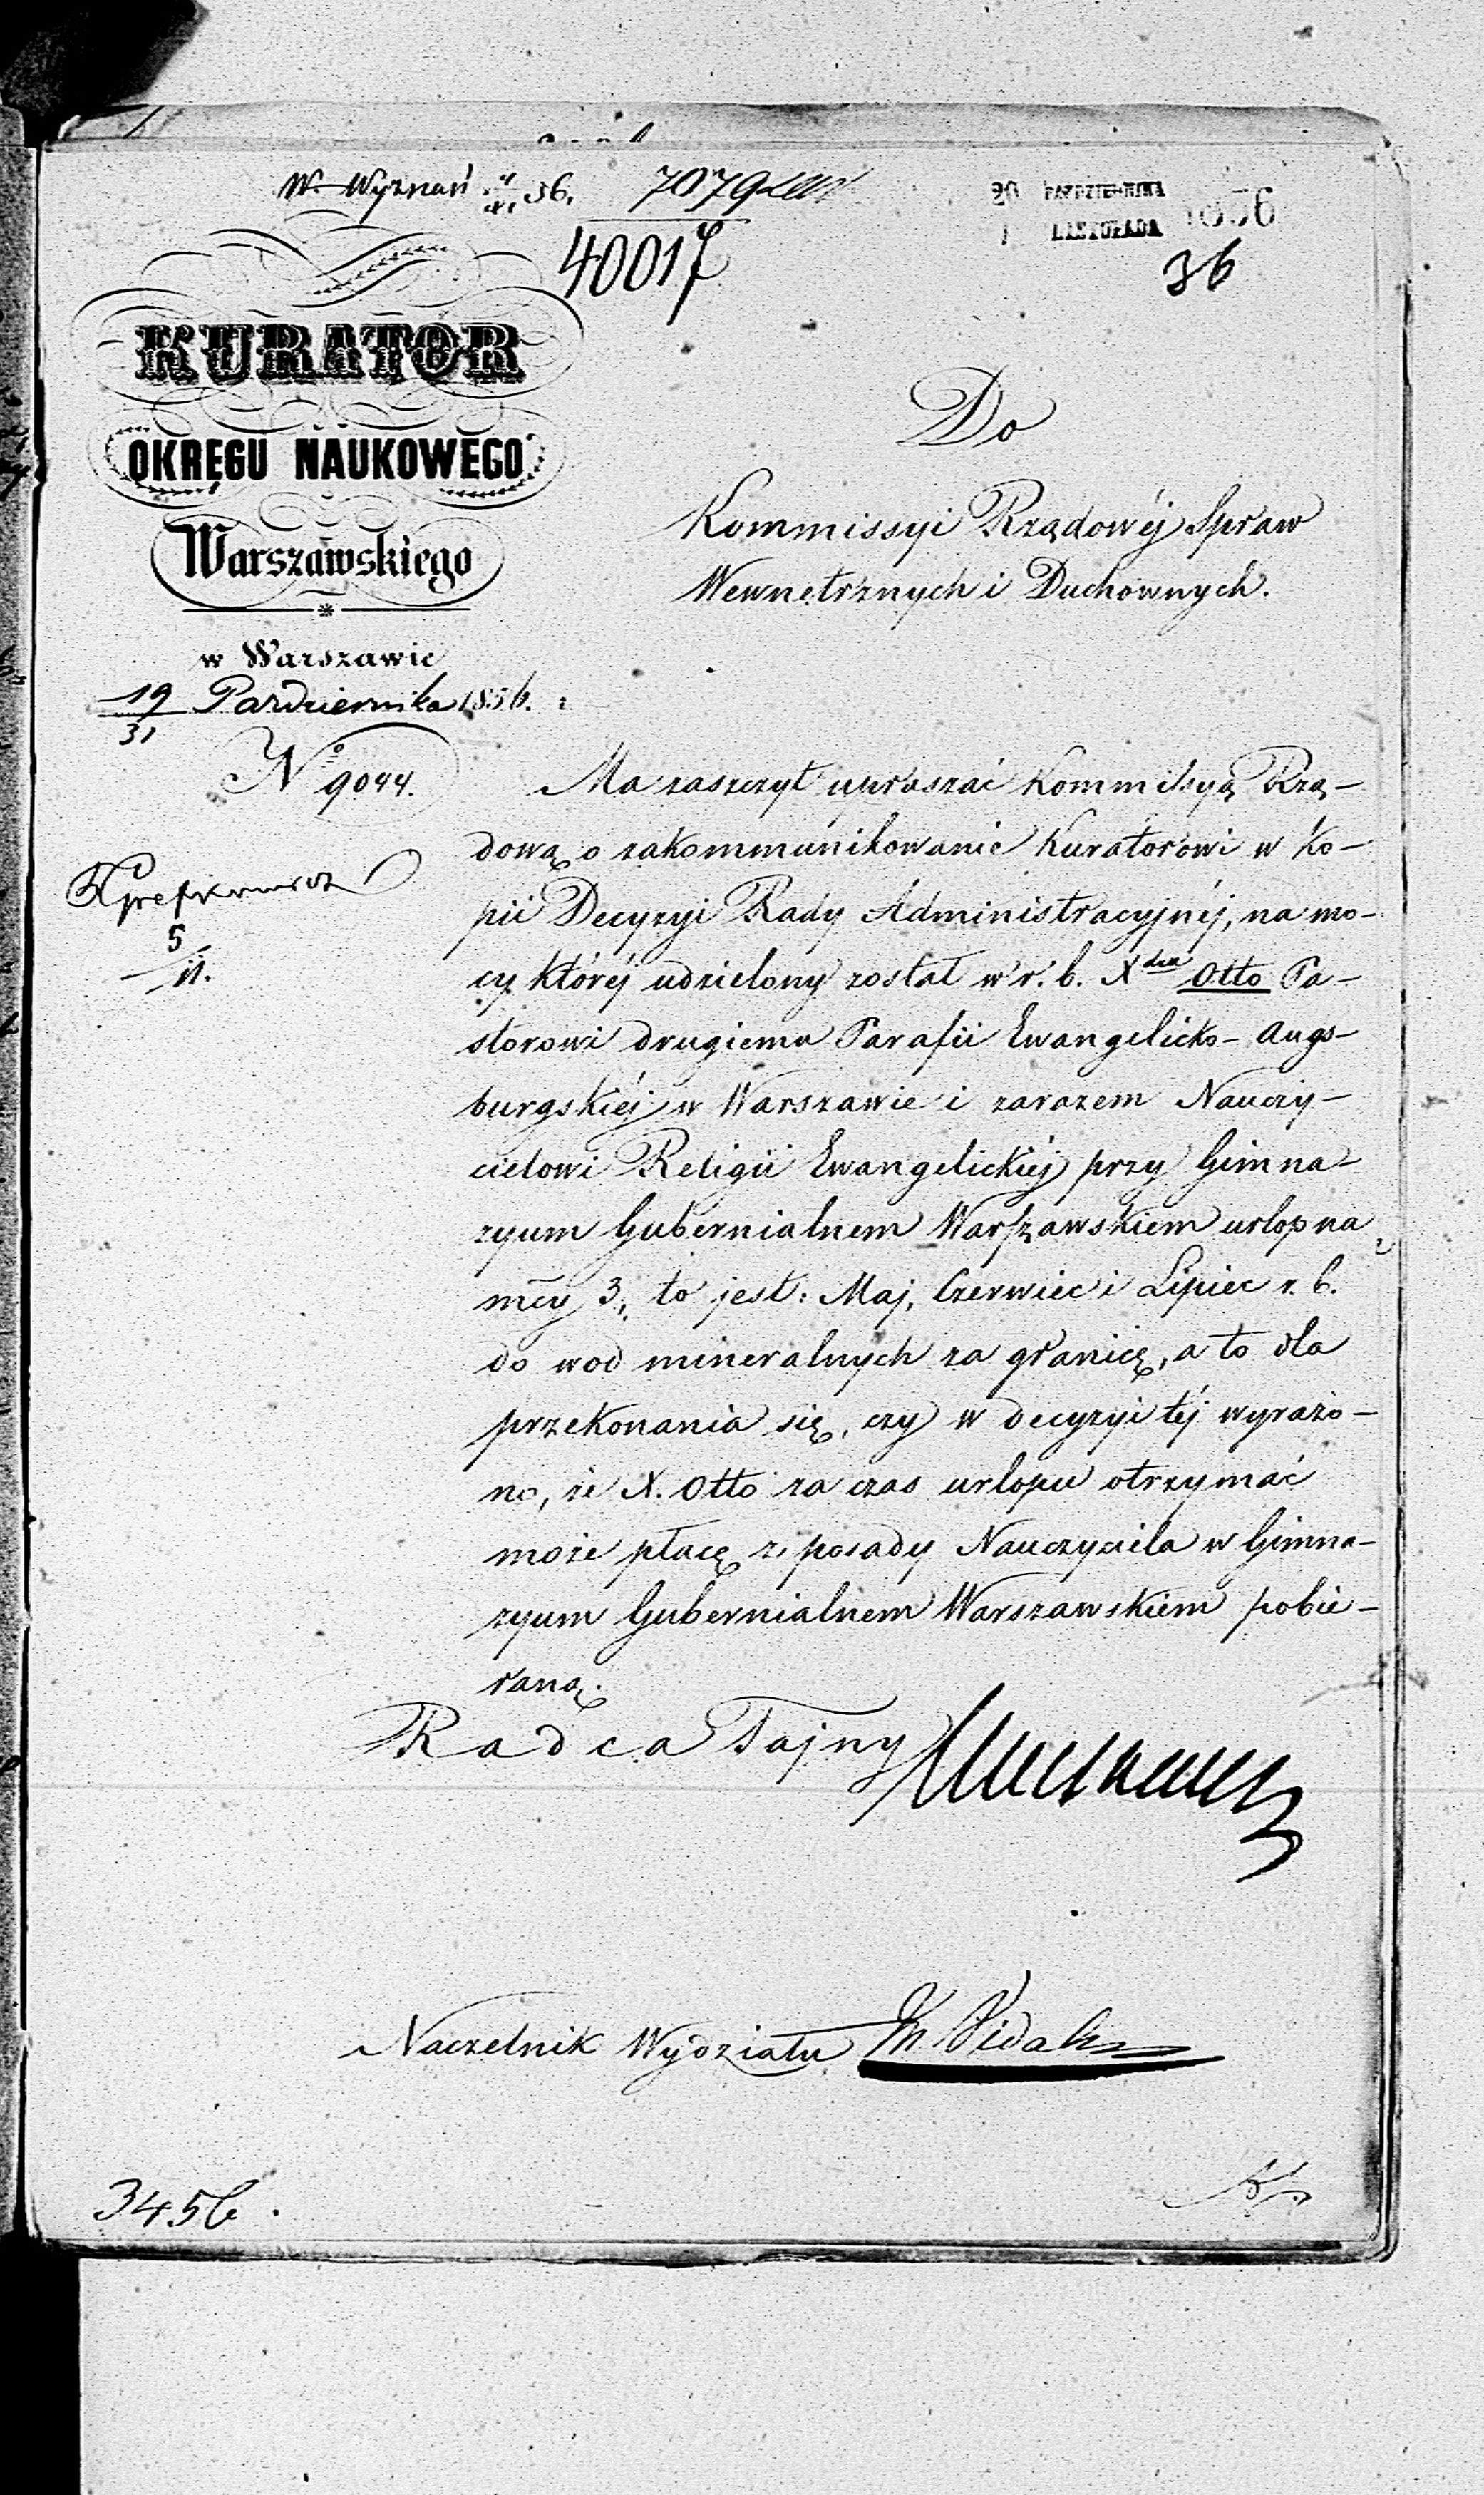 W. Wyznań 4/XI 56. 7079
40017
20 PAŹDZIERNIKA
1 LISTOPADA 1856
36
KURATOR
OKRĘGU NAUKOWEGO
Warszawskiego
w Warszawie
19/31 Października 1856.
No 9044.
Do
Kommissyi Rządowéj Spraw
Wewnętrznych i Duchownych.
Ma zaszczyt upraszać Kommissyą Rzą-
dową o zakommunikowanie Kuratorowi w ko-
pii Decyzyi Rady Administracyjnéj, na mo-
cy któréj udzielony został w r. b. Xdzu Otto Pa-
storowi drugiemu Parafii Ewangelicko-Augs-
burgskiéj w Warszawie i zarazem Nauczy-
cielowi Religii Ewangelickiéj przy Gimna-
zyum Gubernialnem Warszawskiem urlop na
mcy 3, to jest: Maj, Czerwiec i Lipiec r. b.
do wod mineralnych za granicę, a to dla
przekonania się, czy w decyzyi téj wyrażo-
no, że X. Otto za czas urlopu otrzymać
może płacę z posady Nauczyciela w Gimna-
zyum Gubernialnem Warszawskiem pobie-
raną.
Radca Tajny
Naczelnik Wydziału
5/11.
3456.